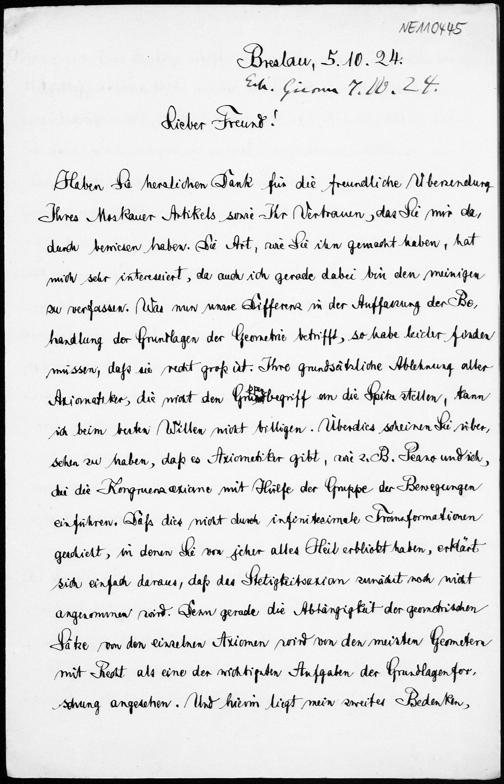 NE110445
Breslau, 5.10.24.
7.10.24.
Lieber Freund!
Haben Sie herzlichen Dank für die freundliche Übersendung
Ihres Moskauer Artikels sowie Ihr Vertrauen, das Sie mir da,
durch bewiesen haben. Die Art, wie Sie ihn gemacht haben, hat
mich sehr interessiert, da auch ich gerade dabei bin den meinigen
zu verfassen. Was nun unsre Differenz in der Auffassung der Be,
handlung der Grundlagen der Geometrie betrifft, so habe leider finden
müssen, daß sie recht groß ist. Ihre grundsätzliche Ablehnung aller
Axiomatiker, die nicht den begriff an die Spitze stellen, kann
ich beim besten Willen nicht billigen. Überdies scheinen Sie über,
sehen zu haben, daß es Axiomatiker gibt, wie z.B. Peano und ich,
die die Kongruenzaxiome mit Hülfe der Gruppe der Bewegungen
einführen. Daß dies nicht durch infinitesimale Transformationen
geschieht, in denen Sie von jeher alles Heil erblickt haben, erklärt
sich einfach daraus, daß das Stetigkeitsaxiom zunächst noch nicht
angenommen wird. Denn gerade die Abhängigkeit der geometrischen
Sätze von den einzelnen Axiomen wird von den meisten Geometern
mit Recht als eine der wichtigsten Aufgaben der Grundlagenfor,
schung angesehen. Und hierin liegt mein zweites Bedenken,